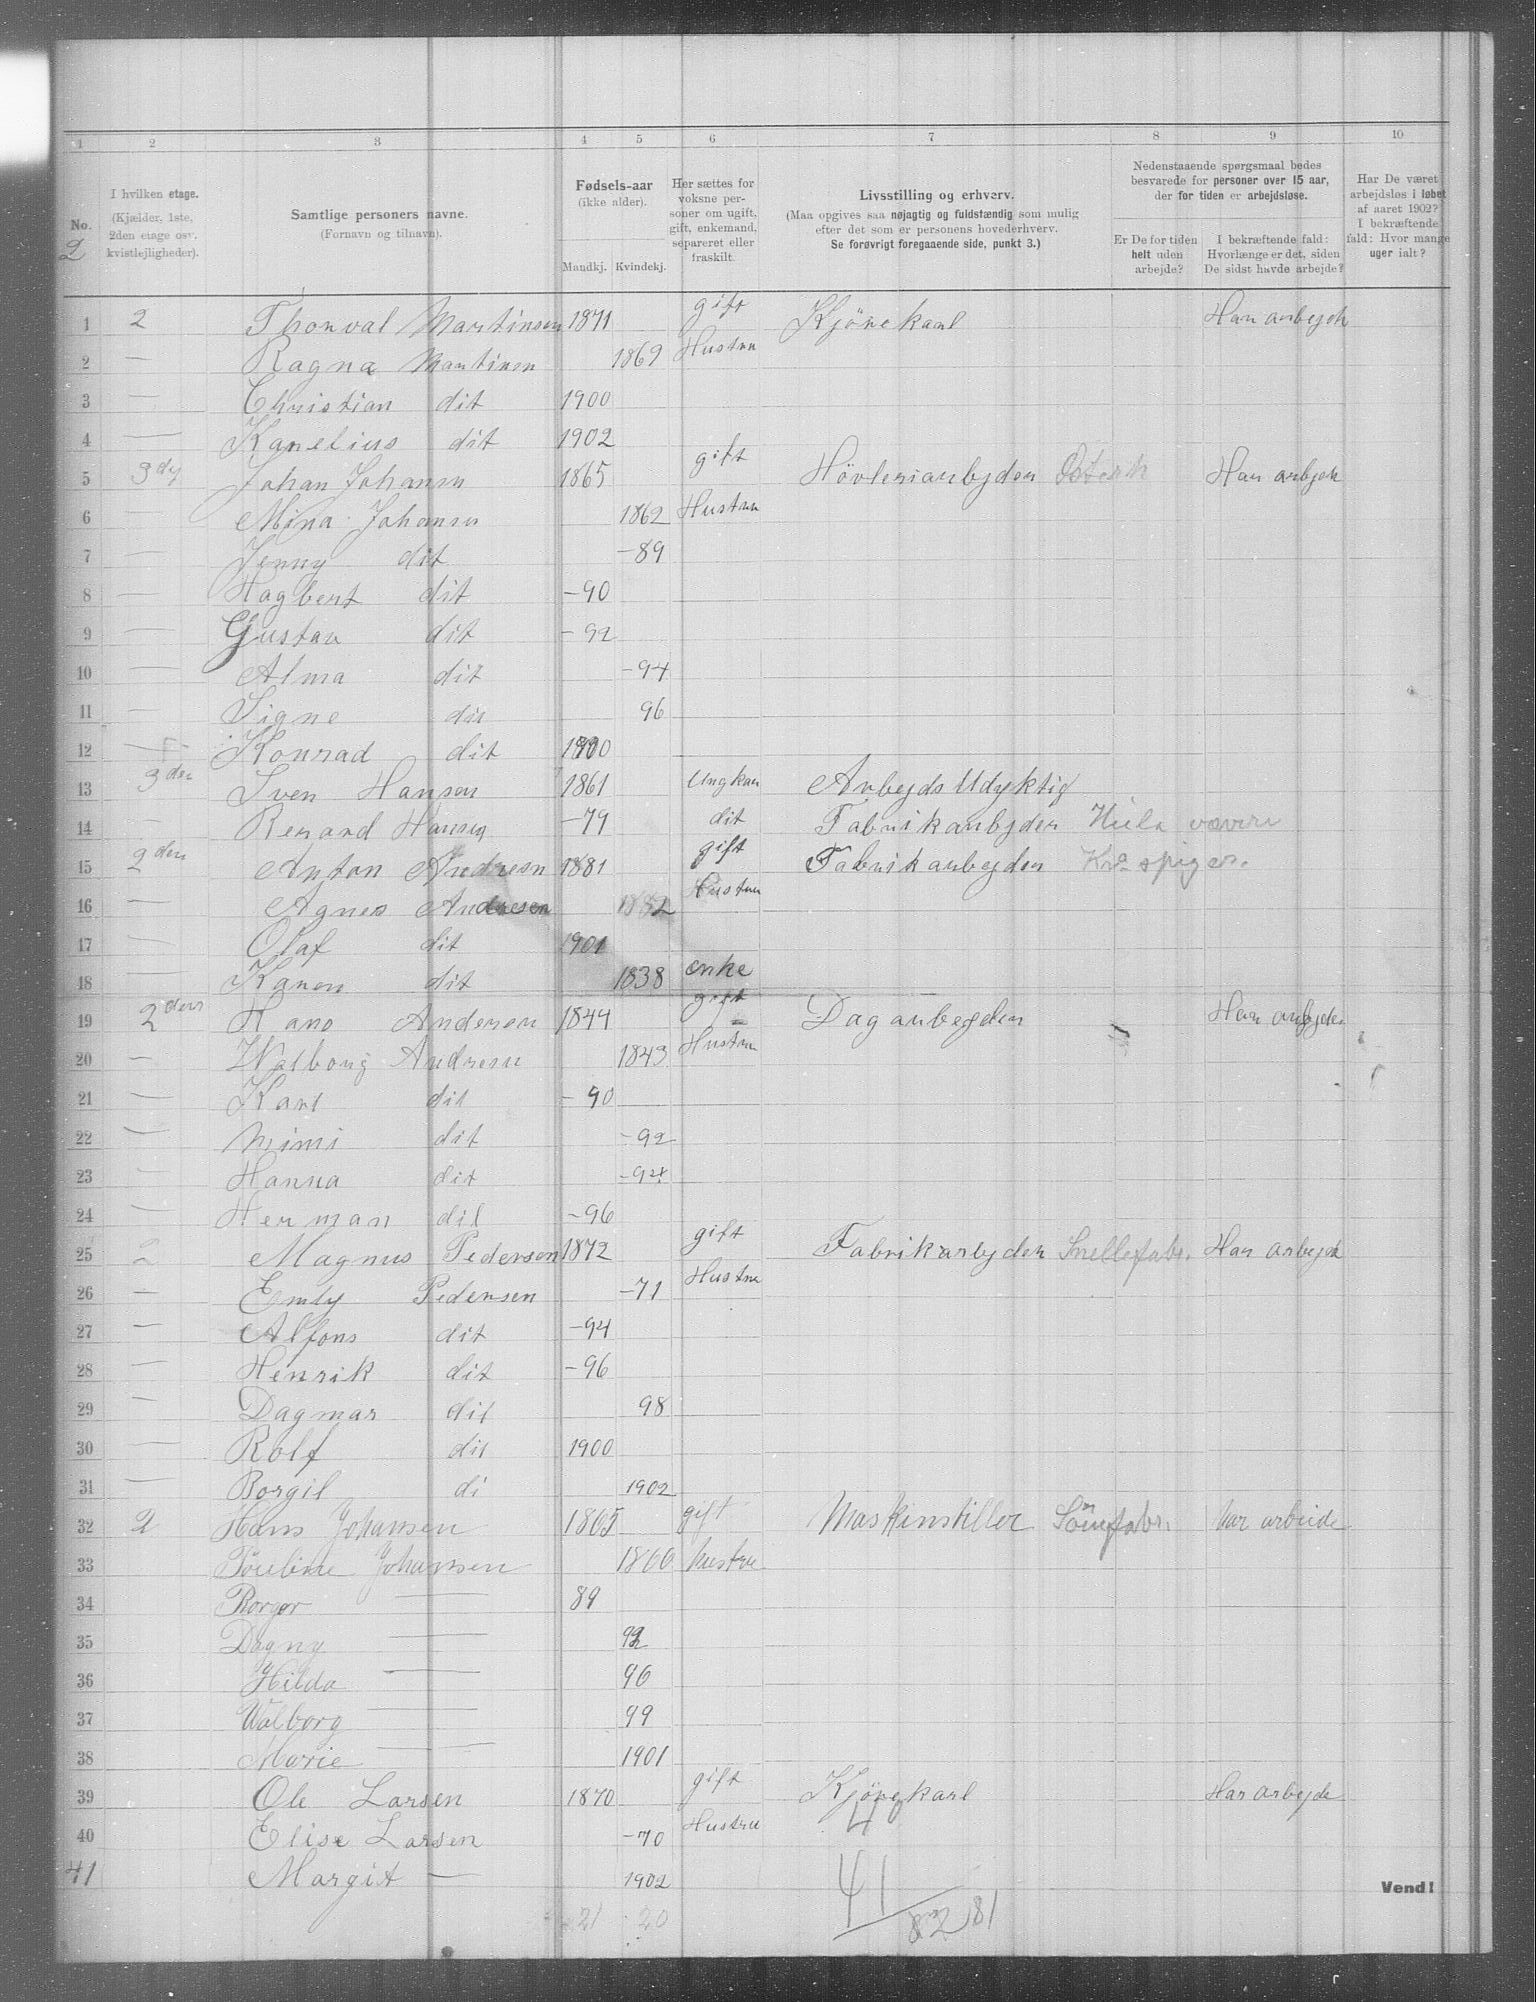 1 2 3 4 5 6 7 8 9 10
No. 2
I hvilken etage. (Kjælder, 1ste, 2den etage osv. kvistlejligheder).
Samtlige personers navne. (Fornavn og tilnavn).
Fødsels-aar (ikke alder). Mandkj. Kvindekj.
Her sættes for voksne personer om ugift, gift, enkemand, separeret eller fraskilt.
Livsstilling og erhverv. (Maa opgives saa nøjagtig og fuldstændig som mulig efter det som er personens hovederhverv. Se forøvrigt foregaaende side, punkt 3.)
Nedenstaaende spørgsmaal bedes besvarede for personer over 15 aar, der for tiden er arbejdsløse.
Er De for tiden helt uden arbejde?
I bekræftende fald: Hvorlænge er det, siden De sidst havde arbejde?
Har De været arbejdsløs i løbet af aaret 1902? I bekræftende fald: Hvor mange uger ialt?
1 2 Thorval Martinsen 1871 gift Kjörekarl Har arbejde
2 — Ragna Martinsen 1869 Hustru
3 — Christian dit 1900
4 — Karelius dit 1902
5 3dy Johan Johansn 1865 gift Hövleriarbejder Har arbjde
6 — Mina Johansn 1862 Hustru
7 — Jenny dit -89
8 — Hagbert dit -90
9 — Gustav dit -92
10 — Alma dit -94
11 — Signe dit 96
12 — Konrad dit 1900
13 3den Sven Hansen 1861 Ungkar Arbejds Udyktig
14 — Renard Hansen -79 dit Fabrikarbjder Hiula væveri
15 2den Anton Andresn 1881 gift Fabrikarbejder Kra spiger.
16 — Agnes Andresen 1882 Hustru
17 — Olaf dit 1901
18 — Karen dit 1838 enke
19 2den Hans Andersen 1844 gift Dagarbejder Har arbjde
20 — Walborg Andresn 1843 Hustru
21 — Karl dit -90
22 — Mimi dit -92
23 — Hanna dit -94
24 — Herman dit -96
25 2 Magnus Pedersen 1872 gift Fabrikarbjder Snellefabr. Har arbejde
26 — Emly Pedersen -71 Hustru
27 — Alfons dit -94
28 — Henrik dit -96
29 — Dagmar dit 98
30 — Rolf dit 1900
31 — Borgil di 1902
32 2 Hans Johansen 1865 gift Maskinstiller Sömfabr. har arbeide
33 Pouline Johansen 1866 hustru
34 Borger — 89
35 Dagny — 92
36 Hilda — 96
37 Valborg — 99
38 Marie — 1901
39 Ole Larsen 1870 gift Kjörekarl Har arbejde
40 Elise Larsen -70 Hustru 40
41 Margit — 1902 41
Vend!
21 20 82 81